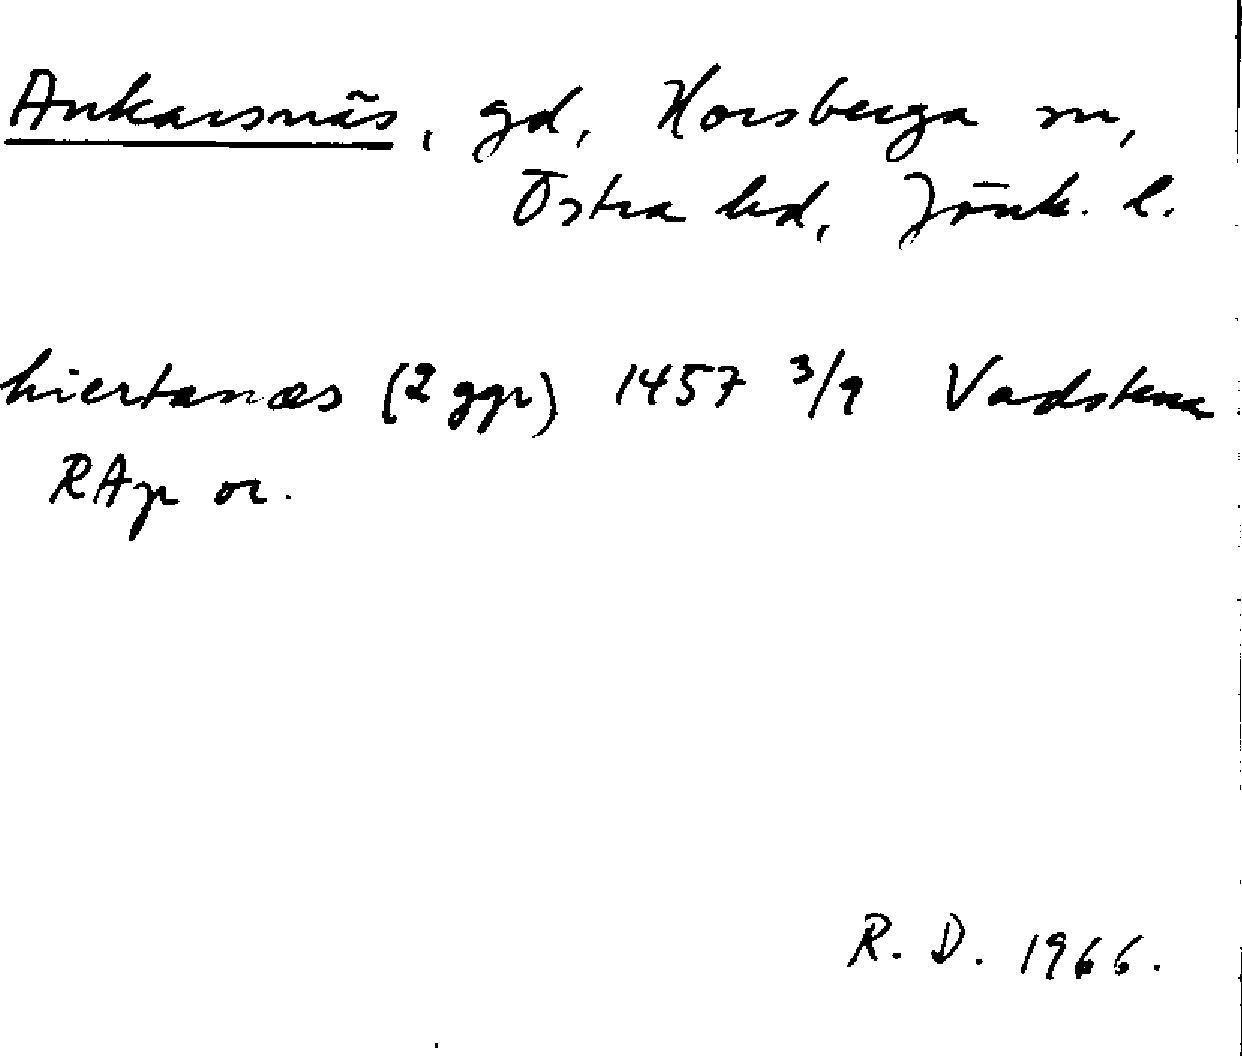 Ankarsnäs, gd, Korsberga sn,
Östra hd, Jönk. l.
hiertanæs (2 ggr) 1457 3/9 Vadstena
RAp or.
R. D. 1966.